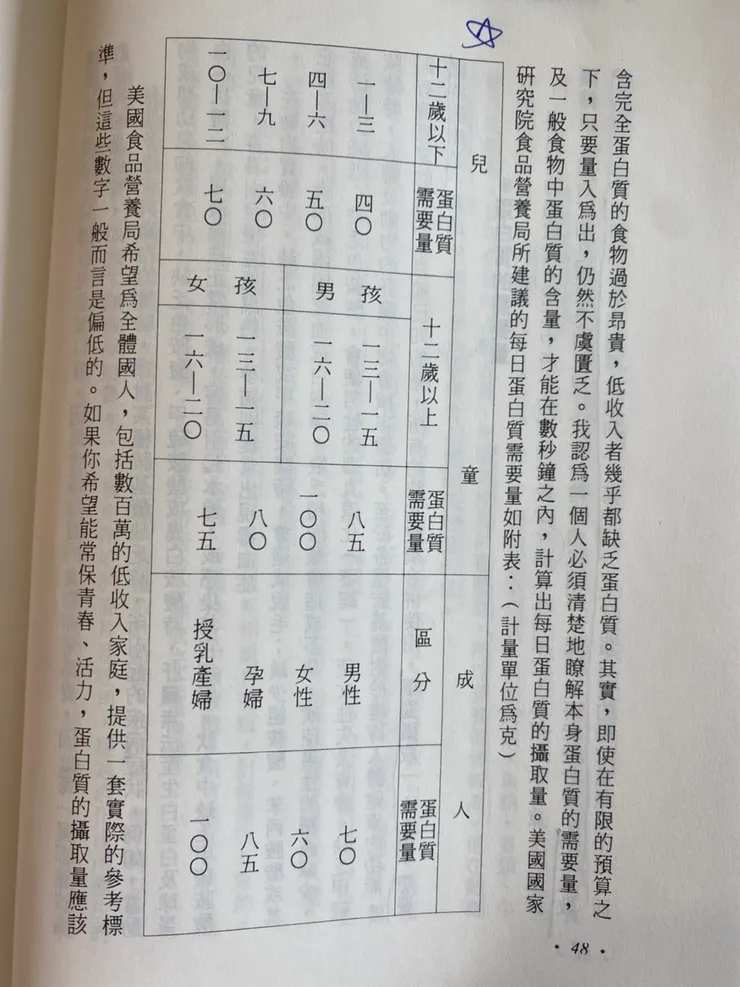 含完全蛋白質的食物過於昂貴，低收入者幾乎都缺乏蛋白質。其實，即使在有限的預算之
下，只要量入爲出，仍然不虞匱乏。我認爲一個人必須清楚地瞭解本身蛋白質的需要量，
及一般食物中蛋白質的含量，才能在數秒鐘之內，計算出每日蛋白質的攝取量。美國國家
研究院食品營養局所建議的每日蛋白質需要量如附表：（計量單位爲克）
兒童
成人
十二歲以下
蛋白質需要量
十二歲以上
蛋白質需要量
區分
蛋白質需要量
一—三
四〇
男孩
一三—一五
八五
男性
七〇
四—六
五〇
一六—二〇
一〇〇
女性
六〇
七—九
六〇
女孩
一三—一五
八〇
孕婦
八五
一〇—一二
七〇
一六—二〇
七五
授乳產婦
一〇〇
美國食品營養局希望爲全體國人，包括數百萬的低收入家庭，提供一套實際的參考標
準，但這些數字一般而言是偏低的。如果你希望能常保青春、活力，蛋白質的攝取量應該
• 48 •